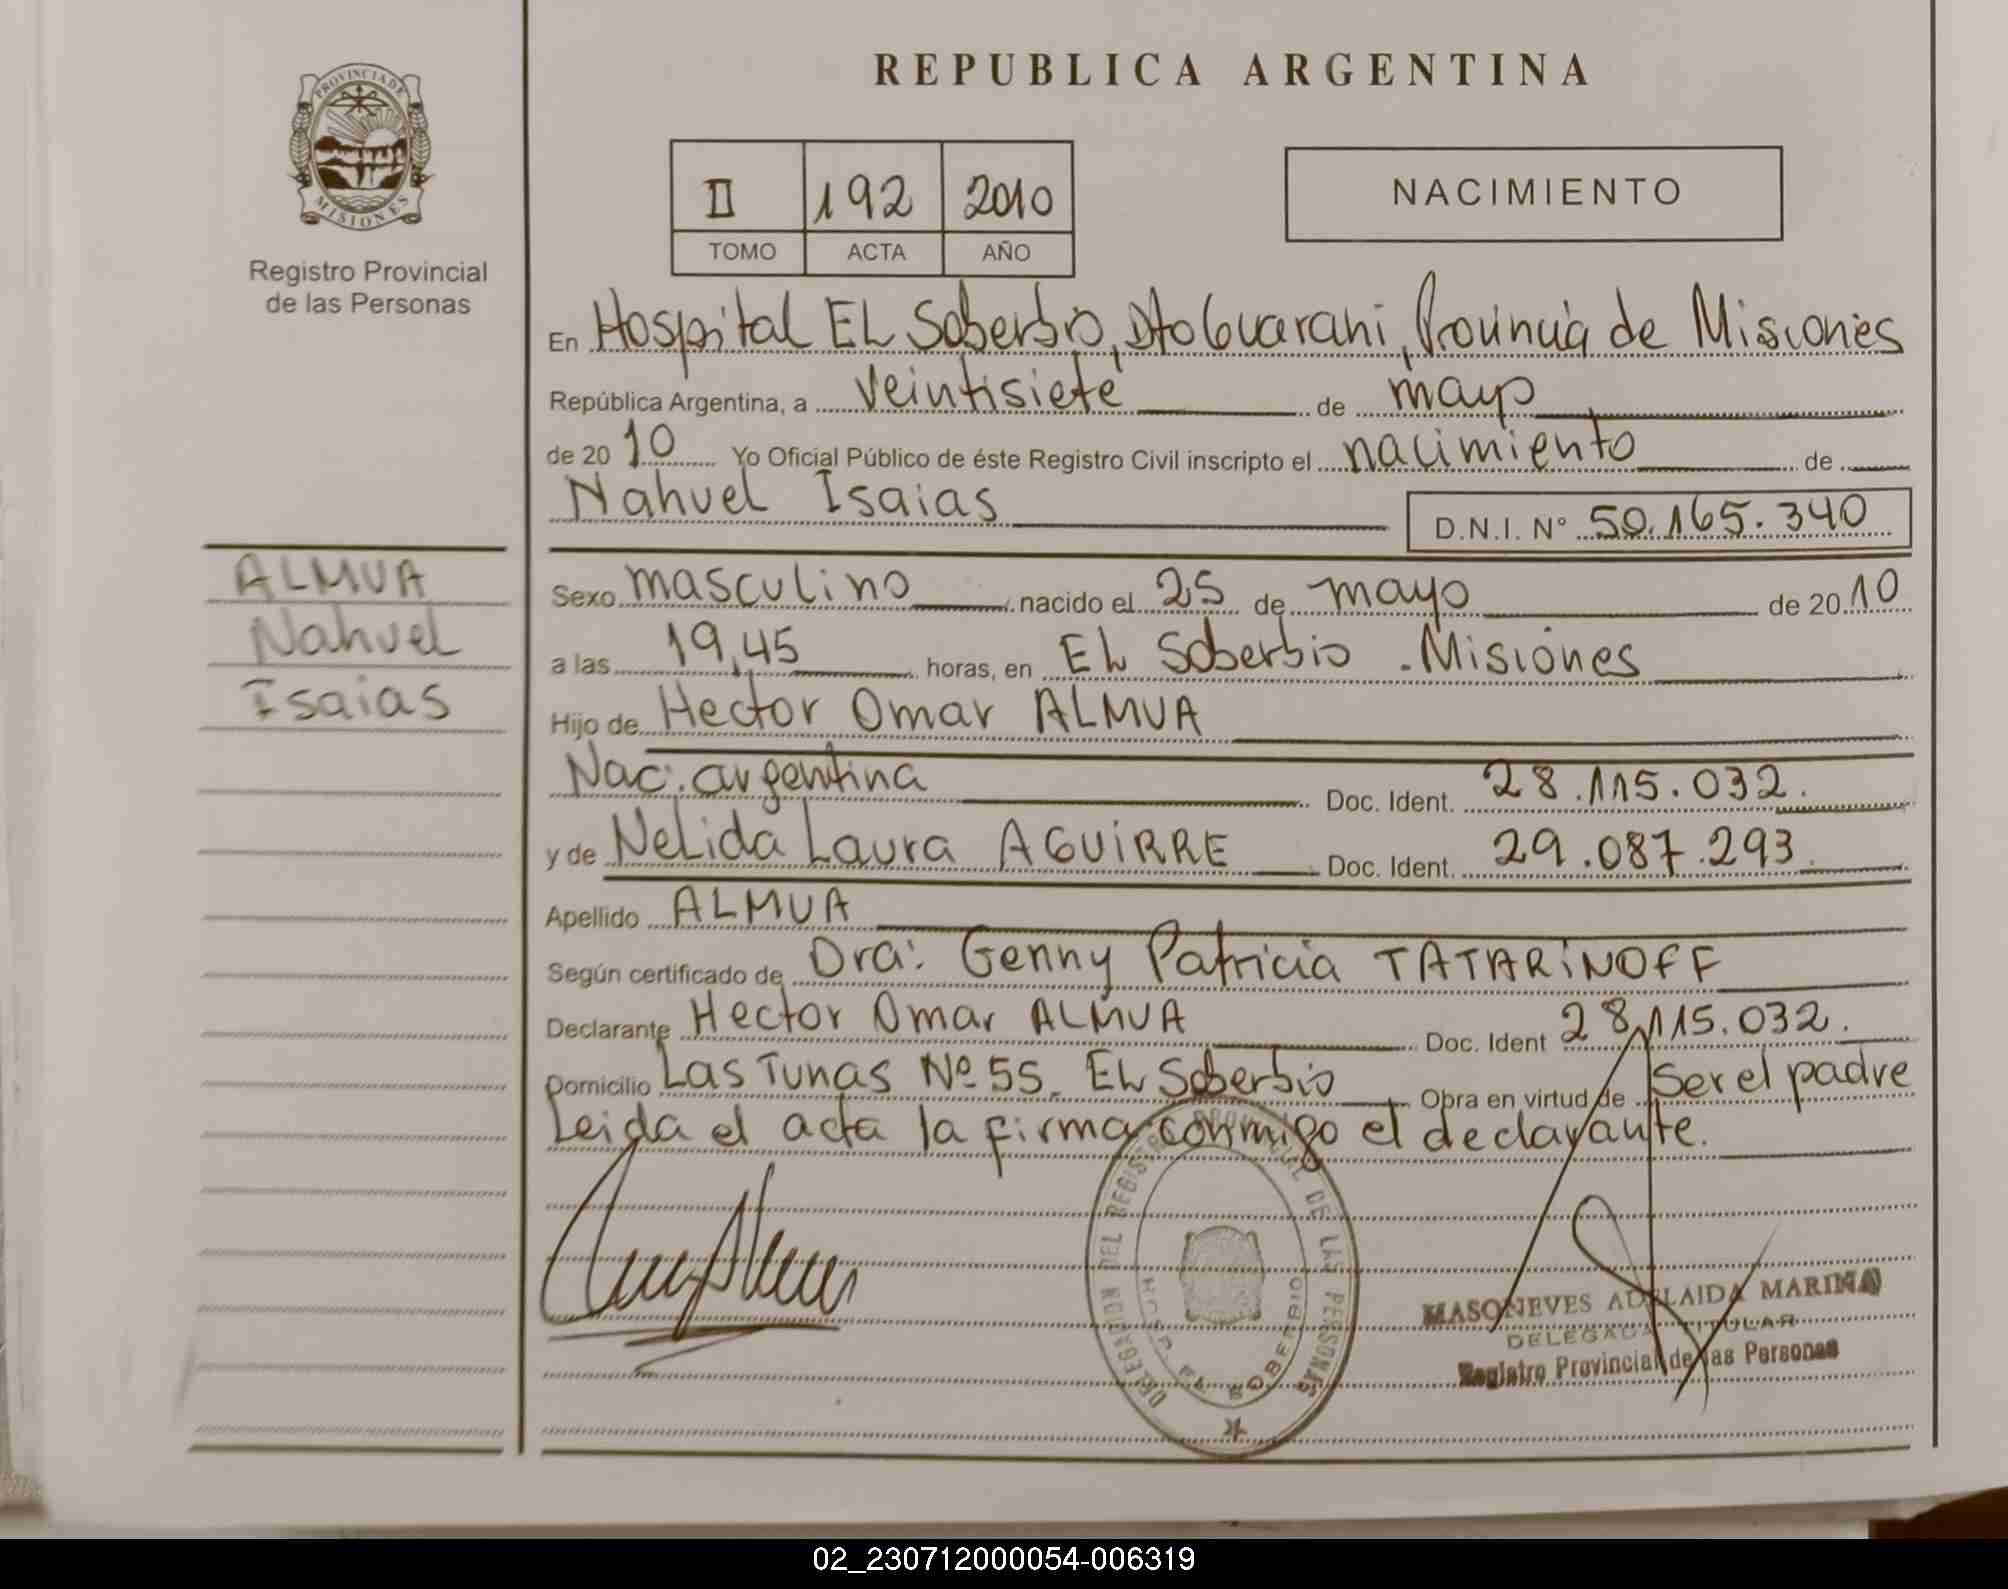 PROVINCIA DE
MISIONES
Registro Provincial
de las Personas
ALMUA
Nahuel
Isaias
REPUBLICA ARGENTINA
II 192 2010
TOMO ACTA AÑO
NACIMIENTO
En Hospital EL Soberbio, Dto Guarani, Provincia de Misiones
República Argentina, a veintisiete de mayo
de 2010 Yo Oficial Público de éste Registro Civil inscripto el nacimiento de
Nahuel Isaias D.N.I. N° 50.165.340
Sexo masculino nacido el 25 de mayo de 2010
a las 19,45 horas, en EL Soberbio . Misiones
Hijo de Hector Omar ALMUA
Nac: argentina Doc. Ident. 28.115.032.
y de NeLida Laura AGUIRRE Doc. Ident. 29.087.293.
Apellido ALMUA
Según certificado de Dra: Genny Patricia TATARINOFF
Declarante Hector Omar ALMUA Doc. Ident 28.115.032.
Domicilio Las Tunas Nº 55. EL Soberbio Obra en virtud de Ser el padre
Leida el acta la firma conmigo el declarante.
DELEGACION DEL REGISTRO PROVINCIAL DE LAS PERSONAS
HOSP. EL SOBERBIO
MASONEVES ADELAIDA MARINA
DELEGADA TITULAR
Registro Provincial de las Personas
02_230712000054-006319